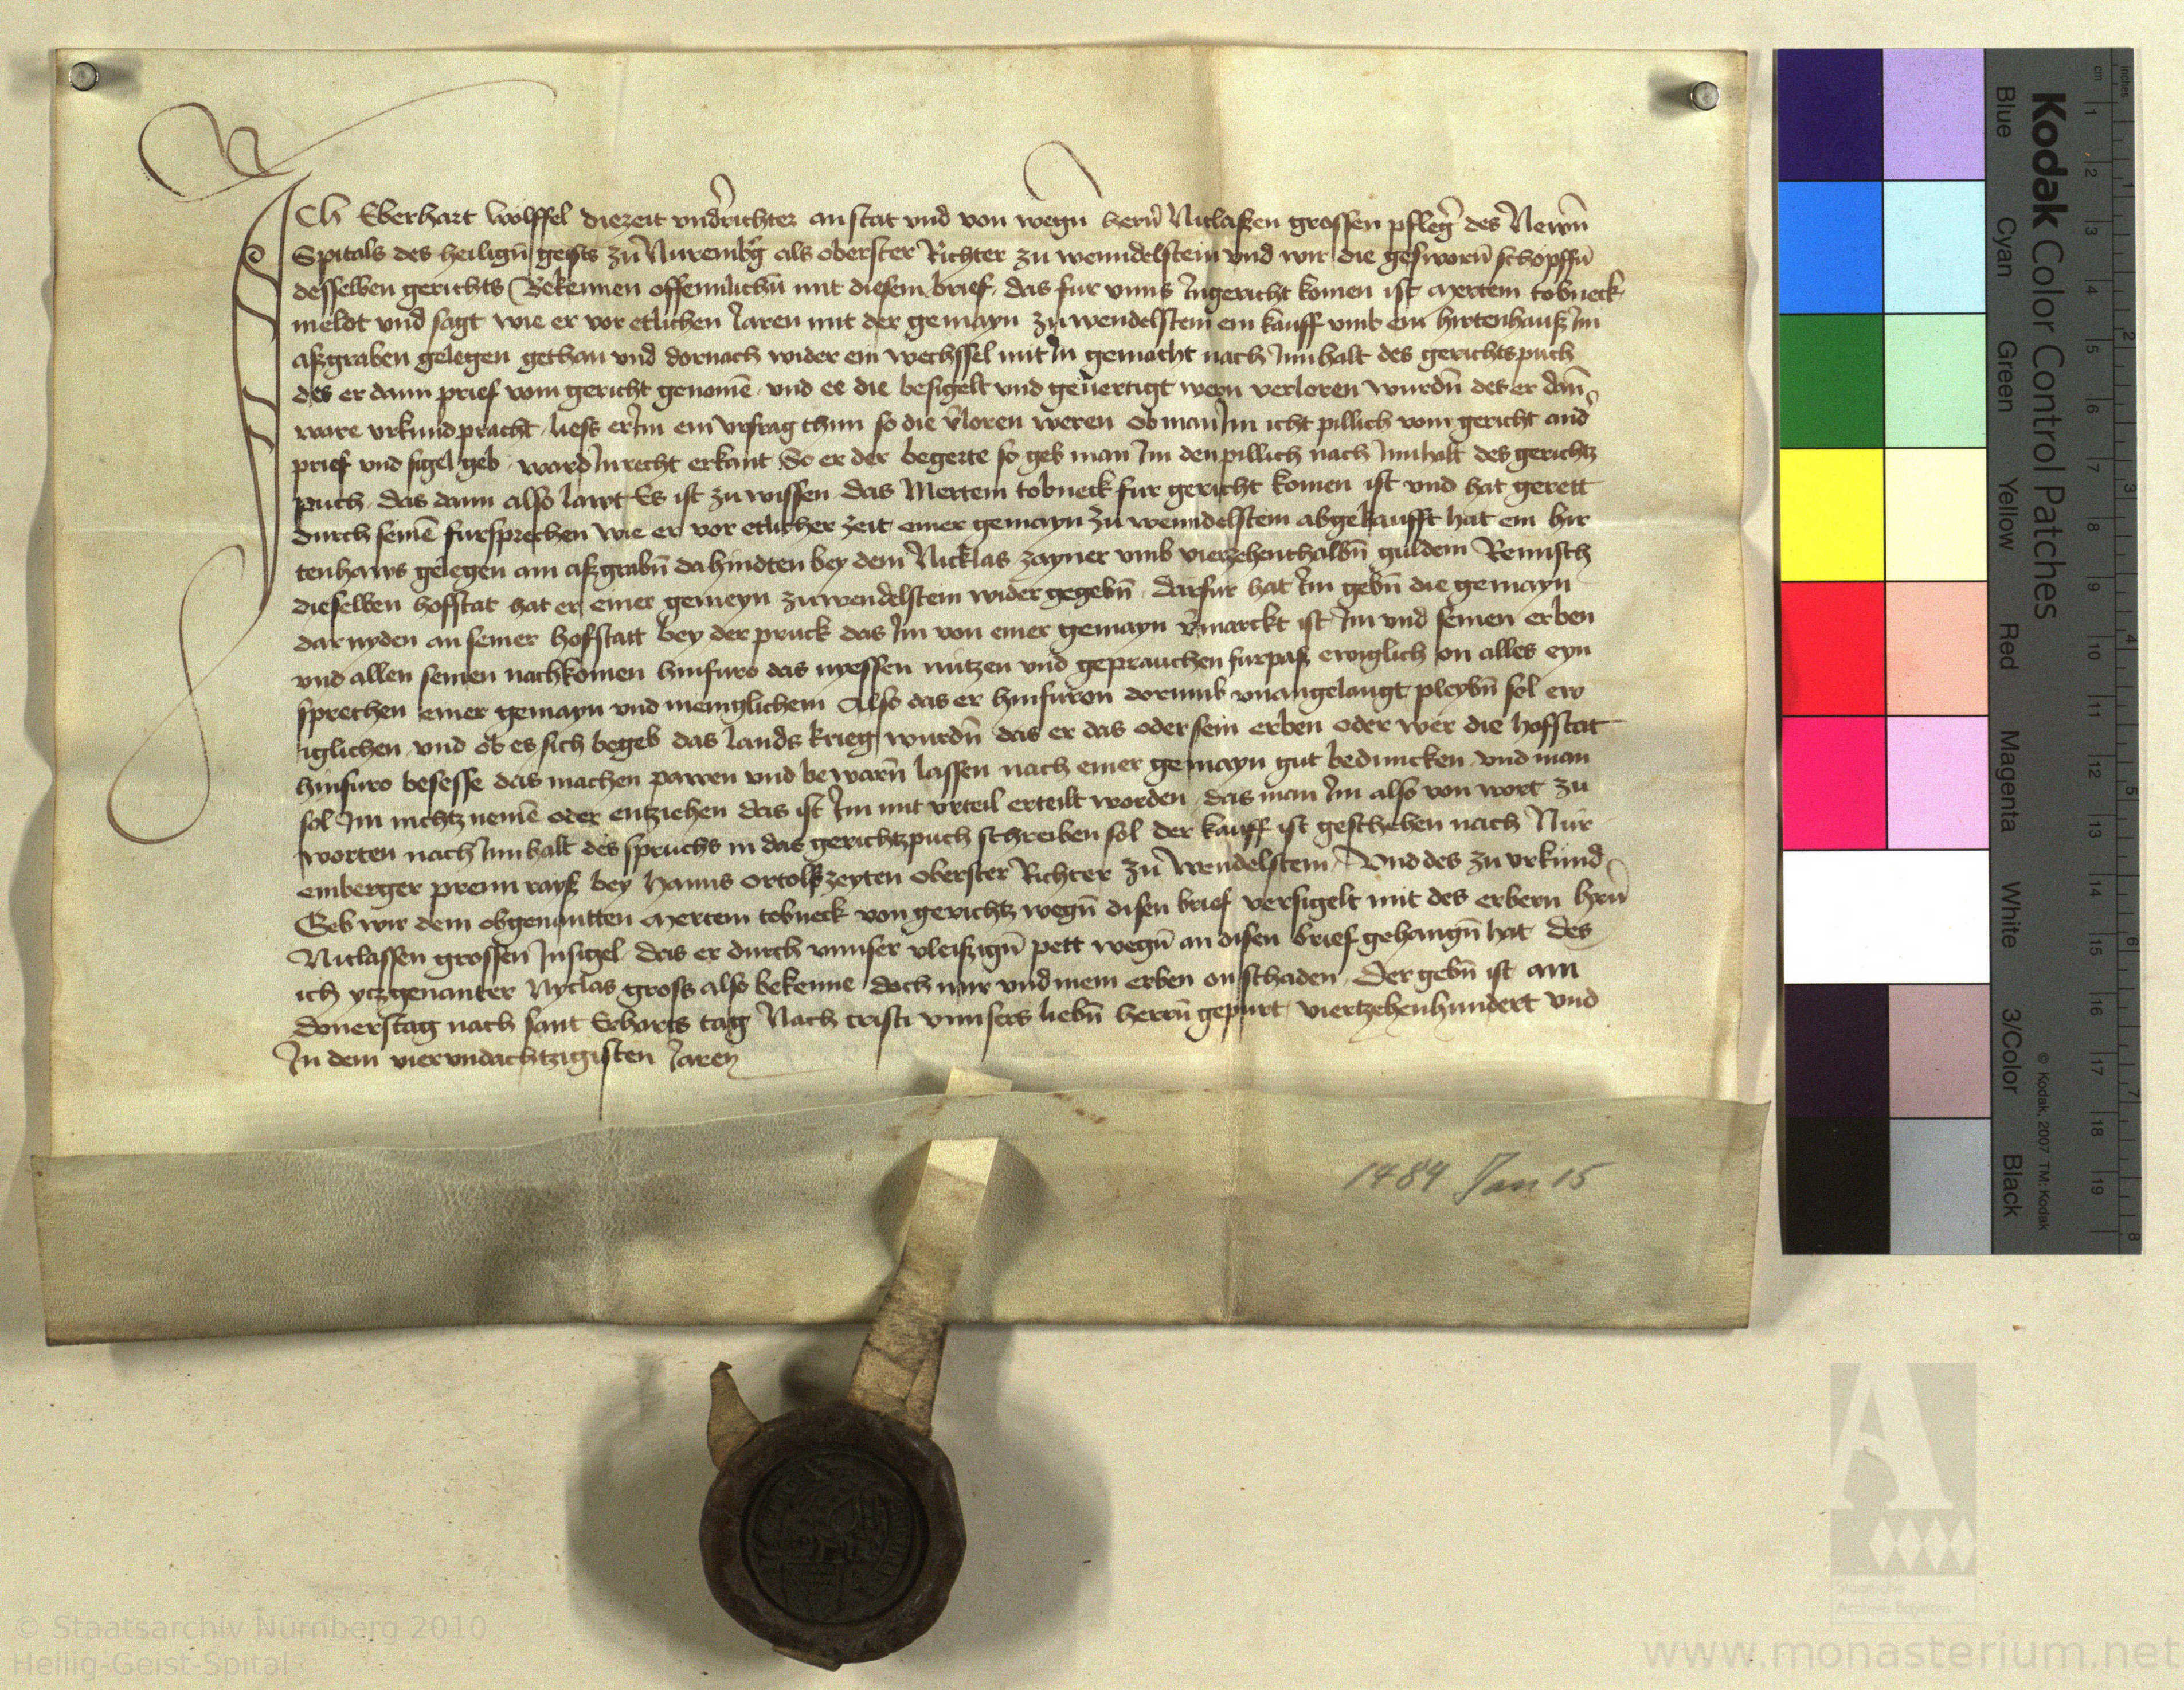 Ich Eberhart wolffel diezeit vndrichter anstat vnd von wegn hern Niclaßen grossen pfleg des Newn
Spitals des heilign geists zu Nurembg als oberster Richter zu wenndelstein vnd wir die gesworn schopffn
desselben gerichts Bekennen offennlichn mit diesem brief das fur vnns Ingericht komen ist mertem tobneck
meldt vnd sagt wie er vor etlichen Jaren mit der gemayn zu wendelstein ein kauff vmb ein hirtenhauß Im
aßgraben gelegen gethan vnd dornach wider ein wechssel mit In gemacht nach Innhalt des gerichtspuch
des er dann prief vom gericht genome vnd ee die besigelt vnd geuertigt wern verloren wurdn des er dan
ware vrkund pracht liess er Im ein vrfrag thun so die vloren weren ob man Im icht pillich vom gericht and
prief vnd sigel geb ward In recht erkant So er der begerte so geb man Im den pillich nach Innhalt des gerichtz
puch das dann also lawt Es ist zu wissen das Mertem tobneck fur gericht komen ist vnd hat gerett
durch seine fursprechen wie er vor etlicher zeit einer gemayn zu wenndelstein abgekaufft hat ein hir
tenhaws gelegen am aßgrabn dahindten bey dem Nicklas zayner vmb vierzehenthalbn guldem Reinisch
dieselben hofstat hat er einer gemeyn zu wendelstein wider gegebn darfur hat Im gebn die gemayn
dar nyden an seiner hofstatt bey der pruck das Im von einer gemayn vmarckt ist Im vnd seinen erben
vnd allen seinen nachkomen hinfuro das nyessen nutzen vnd geprauchen furpaß ewiglich on alles eyn
sprechen einer gemayn vnd meniglichem Also das er hinfuron dorumb vnangelangt pleybn sol ew
iglichen vnd ob es sich begeb das lands krieg wurdn das er das oder sein erben oder wer die hofstat
hinfuro besesse das machen pawen vnd bewarn lassen nach einer gemayn gut beduncken vnd man
sol Im nichtz neme oder entziehen das ist Im mit vrteil erteilt worden das man Im also von wort zu
worten nach Innhalt des spruchs in das gerichtzpuch schreiben sol der kauff ist geschehen nach Nur
emberger prenn rayß bey Hanns ortolffzeyten oberster Richter zu Wendelstein Vnd des zu vrkund
Geb wir dem obgenantten mertem tobneck von gerichtz wegn disen brief versigelt mit des erbern hern
Niclassen grossen Insigel das er durch vnnser vleißign pett wegn an disen brief gehangn hat des
ich yczgenanter Nyclas gross also bekenne doch mir vnd mein erben on schaden Der gebn ist am
Donerstag nach sant Erharts tag Nach cristi vnnsers liebn herrn gepurt viertzehenhundert vnd
In dem viervndachtzigisten Jaren
1484 Jan 15
Kodak Color Control Patches
Blue Cyan Green Yellow Red Magenta White 3/Color Black
© Kodak, 2007 TM: Kodak
cm 1 2 3 4 5 6 7 8 9 10 11 12 13 14 15 16 17 18 19
inches 1 2 3 4 5 6 7 8
Staatliche
Archive Bayerns
© Staatsarchiv Nürnberg 2010
Heilig-Geist-Spital
www.monasterium.net